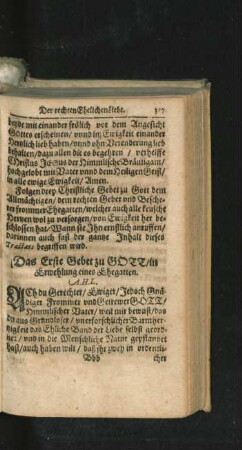 Der rechten Ehelichen Liebe. 317
beyde mit einander frölich vor dem Angesicht
Gottes erscheinen/ vnnd in Ewigkeit einander
Hertzlich lieb haben/ vnnd ohn Veränderung lieb
behalten/ dazu allen die es begehren/ verhelffe
Christus Jesus der Himmlische Bräutigam/
hochgelobt mit Vater vnnd dem Heiligen Geist/
in alle ewige Ewigkeit/ Amen.
Folgen drey Christliche Gebet zu Gott dem
Allmächtigen/ dem rechten Geber vnd Besche-
rer frommer Ehegatten/ welcher auch alle keusche
Hertzen wol zu versorgen/ von Ewigkeit her be-
schlossen hat/ Wann sie Ihn ernstlich anruffen/
darinnen auch fast der gantze Inhalt dieses
Tractats begriffen wird.
Das Erste Gebet zu GOTT/ in
Erwehlung eines Ehegatten.
A. H. L.
ACh du Gerechter/ Ewiger/ Jedoch Gnä-
diger Frommer vnd Getrewer GOTT/
Himmlischer Vater/ weil mir bewust/ das
du aus Grundloser/ vnerforschlicher Barmher-
tzigkeit das Ehliche Band der Liebe selbst geord-
net/ vnd in die Menschliche Natur gepflantzet
hast/ auch haben wilt/ daß ihr zwey in ordentli-
Bbb cher